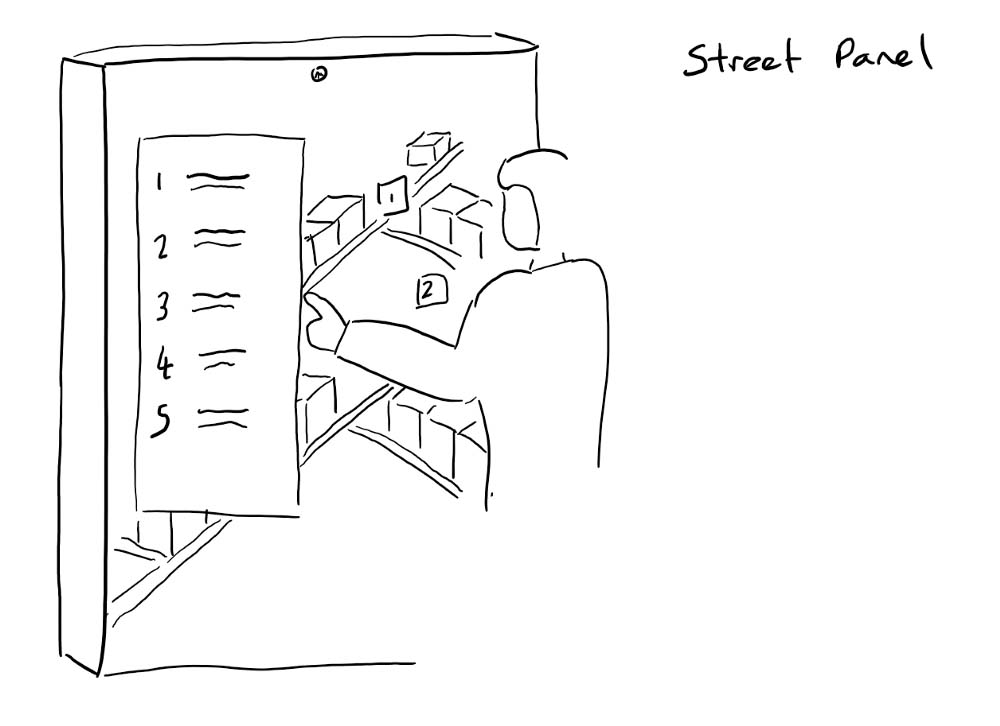 Street Panel
1
2
3
4
5
1
2